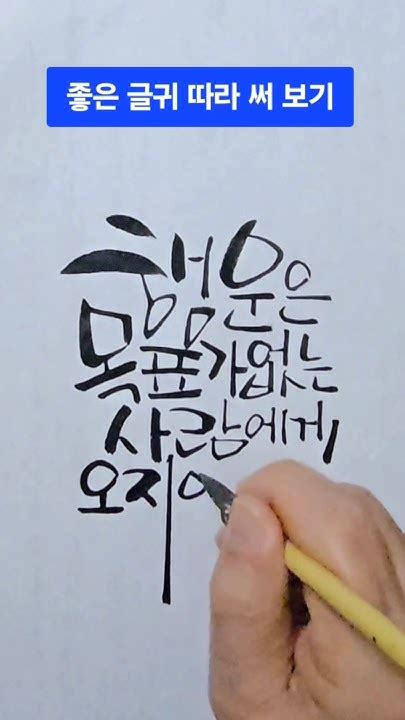 좋은 글귀 따라 써 보기
행운은
목표가없는
사람에게
오지ㅇ